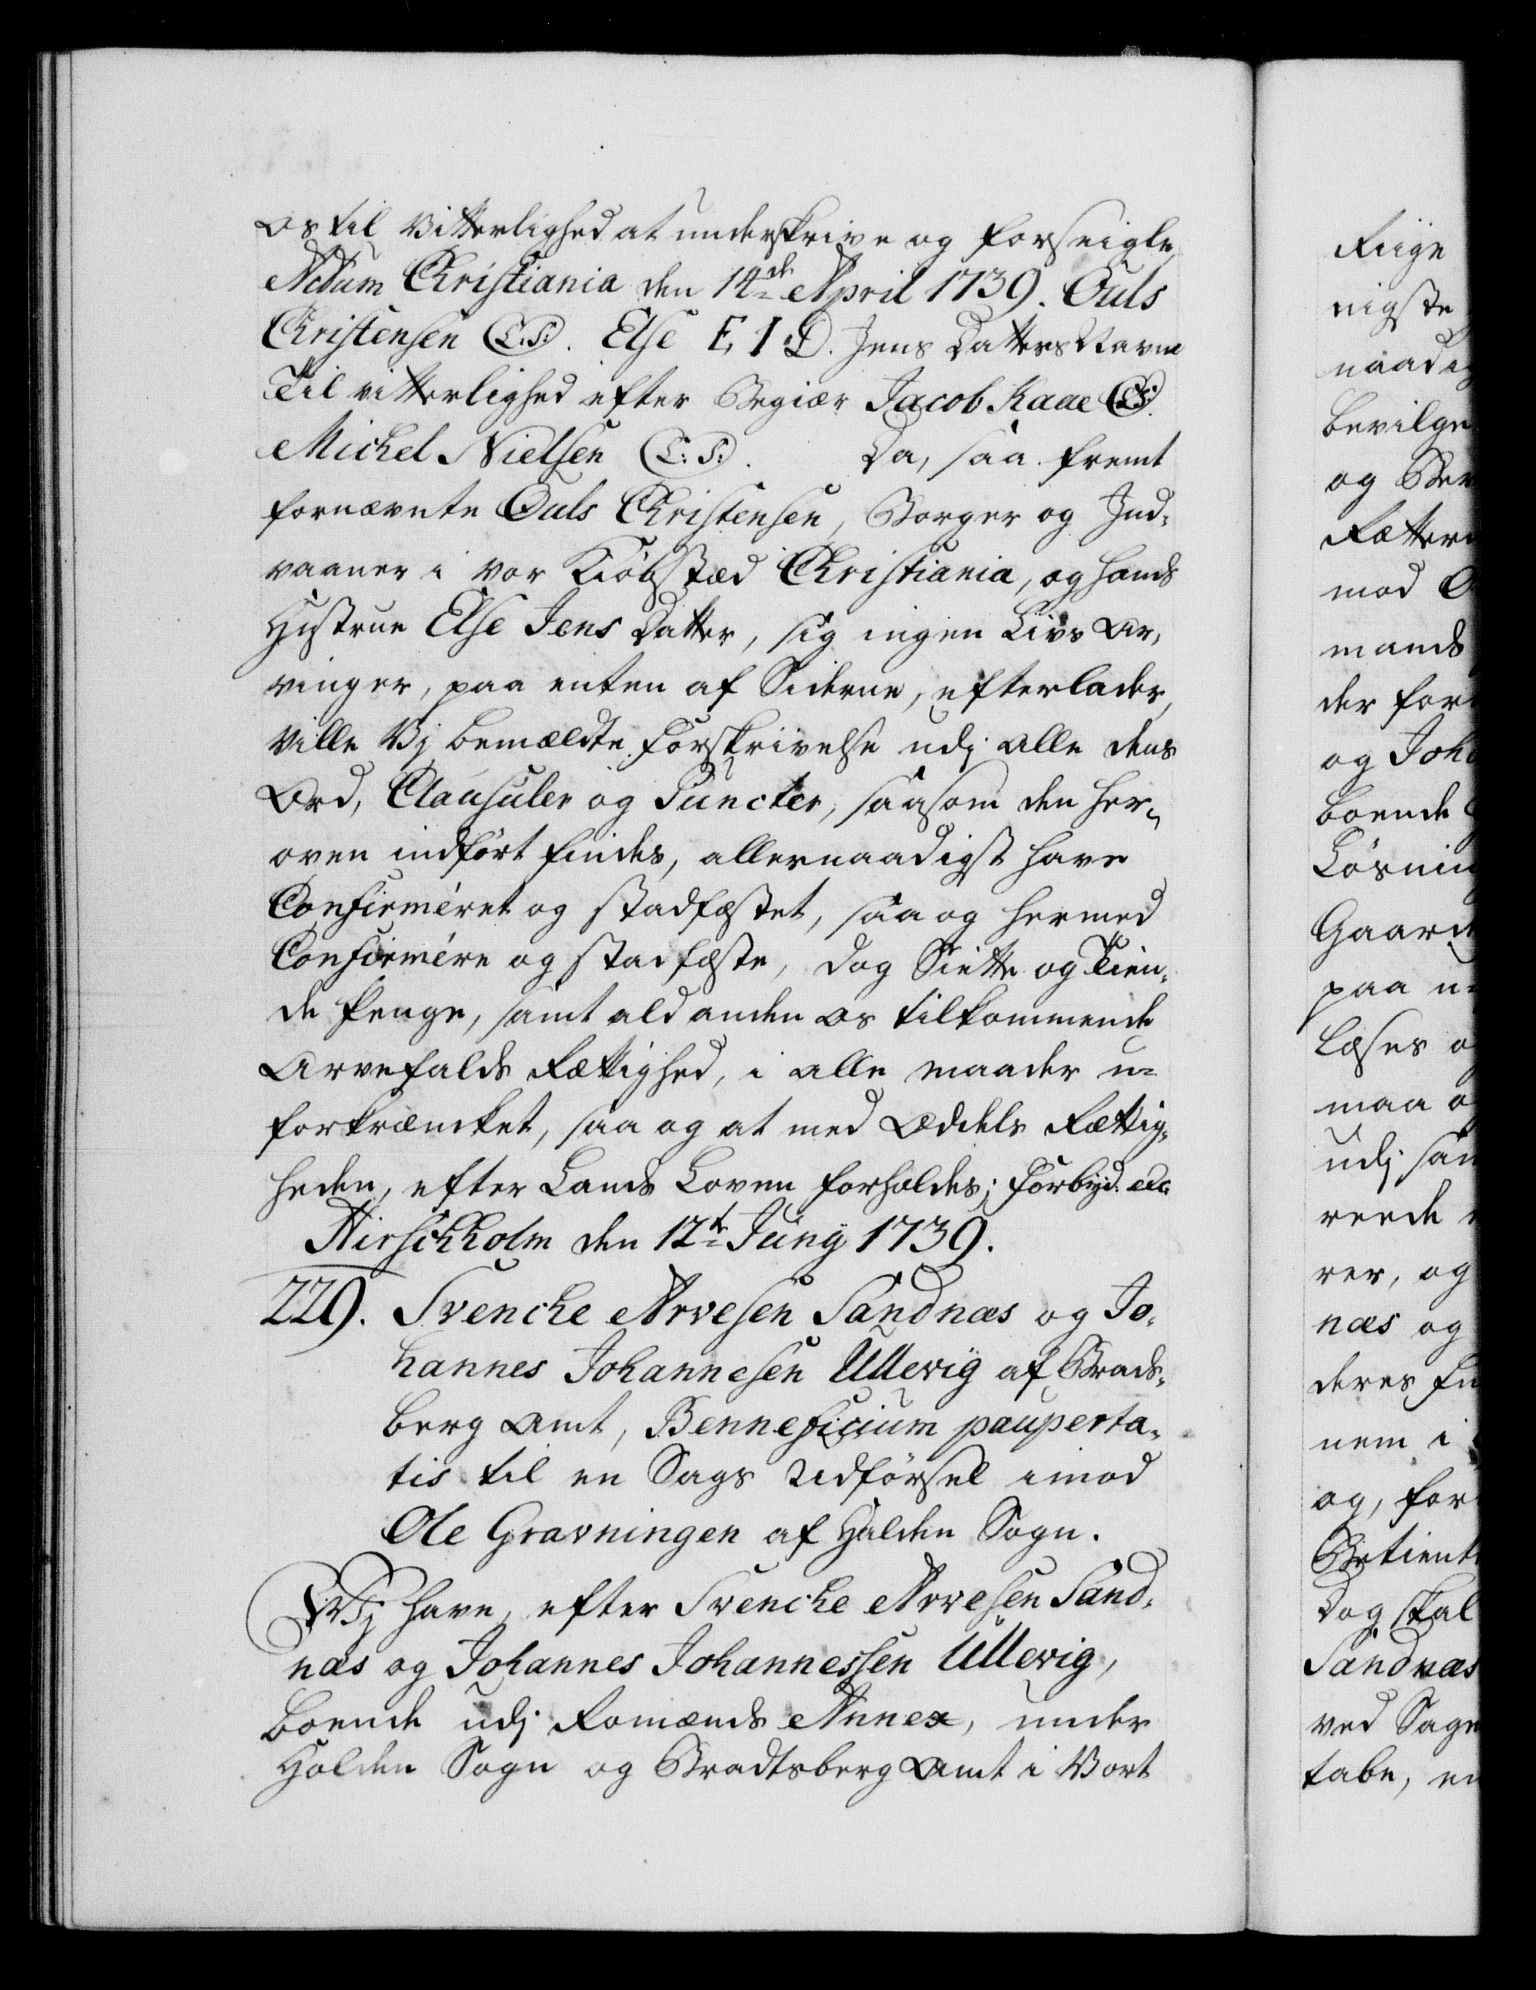 os til Vitterlighed at underskrive og forseigle,
Actum Christiania den 14de April 1739. Ouls
Christensen (L.S.). Else E I D. Jens Datters Navne
Til vitterlighed efter Begiær Jacob Kaae (L.S.)
Michel Nielsen (L.S.). Da, saa fremt
fornævnte Ouls Christensen, Borger og Ind-
vaaner i vor Kiøbstæd Christiania, og hands
Hustrue Else Jens Datter, sig ingen Livs Ar-
vinger, paa enten af Siderne, efterlader,
Ville Vj bemældte Forskrivelse udj alle dens
Ord, Clausuler og Puncter, saasom den her-
oven indført findes, allernaadigst have
Confirmeret og stadfæstet, saa og hermed
Confirmere og stadfæste, dog Siette og Tien-
de Penge, samt ald anden os tilkommende
Arvefalds Rettighed, i alle maader u-
forkræncket, saa og at med Oddels Rettig-
heden, efter Lands Loven forholdes; Forbyd. etc.
Hirschholm den 12te Junij 1739.
229. Svencke Arvesen Sandnæs og Jo-
hannes Johannesen Ullevig af Brads-
berg Amt, Benneficium pauperta-
tis til en Sags Udførsel imod
Ole Gravningen af Holden Sogn.
Vj have, efter Svencke Arvesen Sand-
næs og Johannes Johannessen Ullevig,
boende udj Romænds Annex, under
Holden Sogn og Bradtsberg Amt i Vort
Riige
nigste
naadig
bevilge
og Bev
Retter
mod O
mands
der for
og Joh
boende
Løsnin
Gaard
paa u-
læses o
maa o
udj saa
reede
rer, og
næs og
deres
nem i
og, for
Betient
Dog skal
Sandnæs
ved Sage
tabe, en